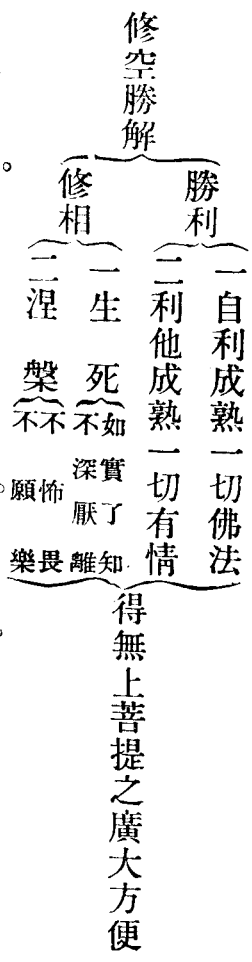 修空勝解
勝利
一自利成熟一切佛法
二利他成熟一切有情
修相
一生死
如實了知
不深厭離
二涅槃
不怖畏
不願樂
得無上菩提之廣大方便